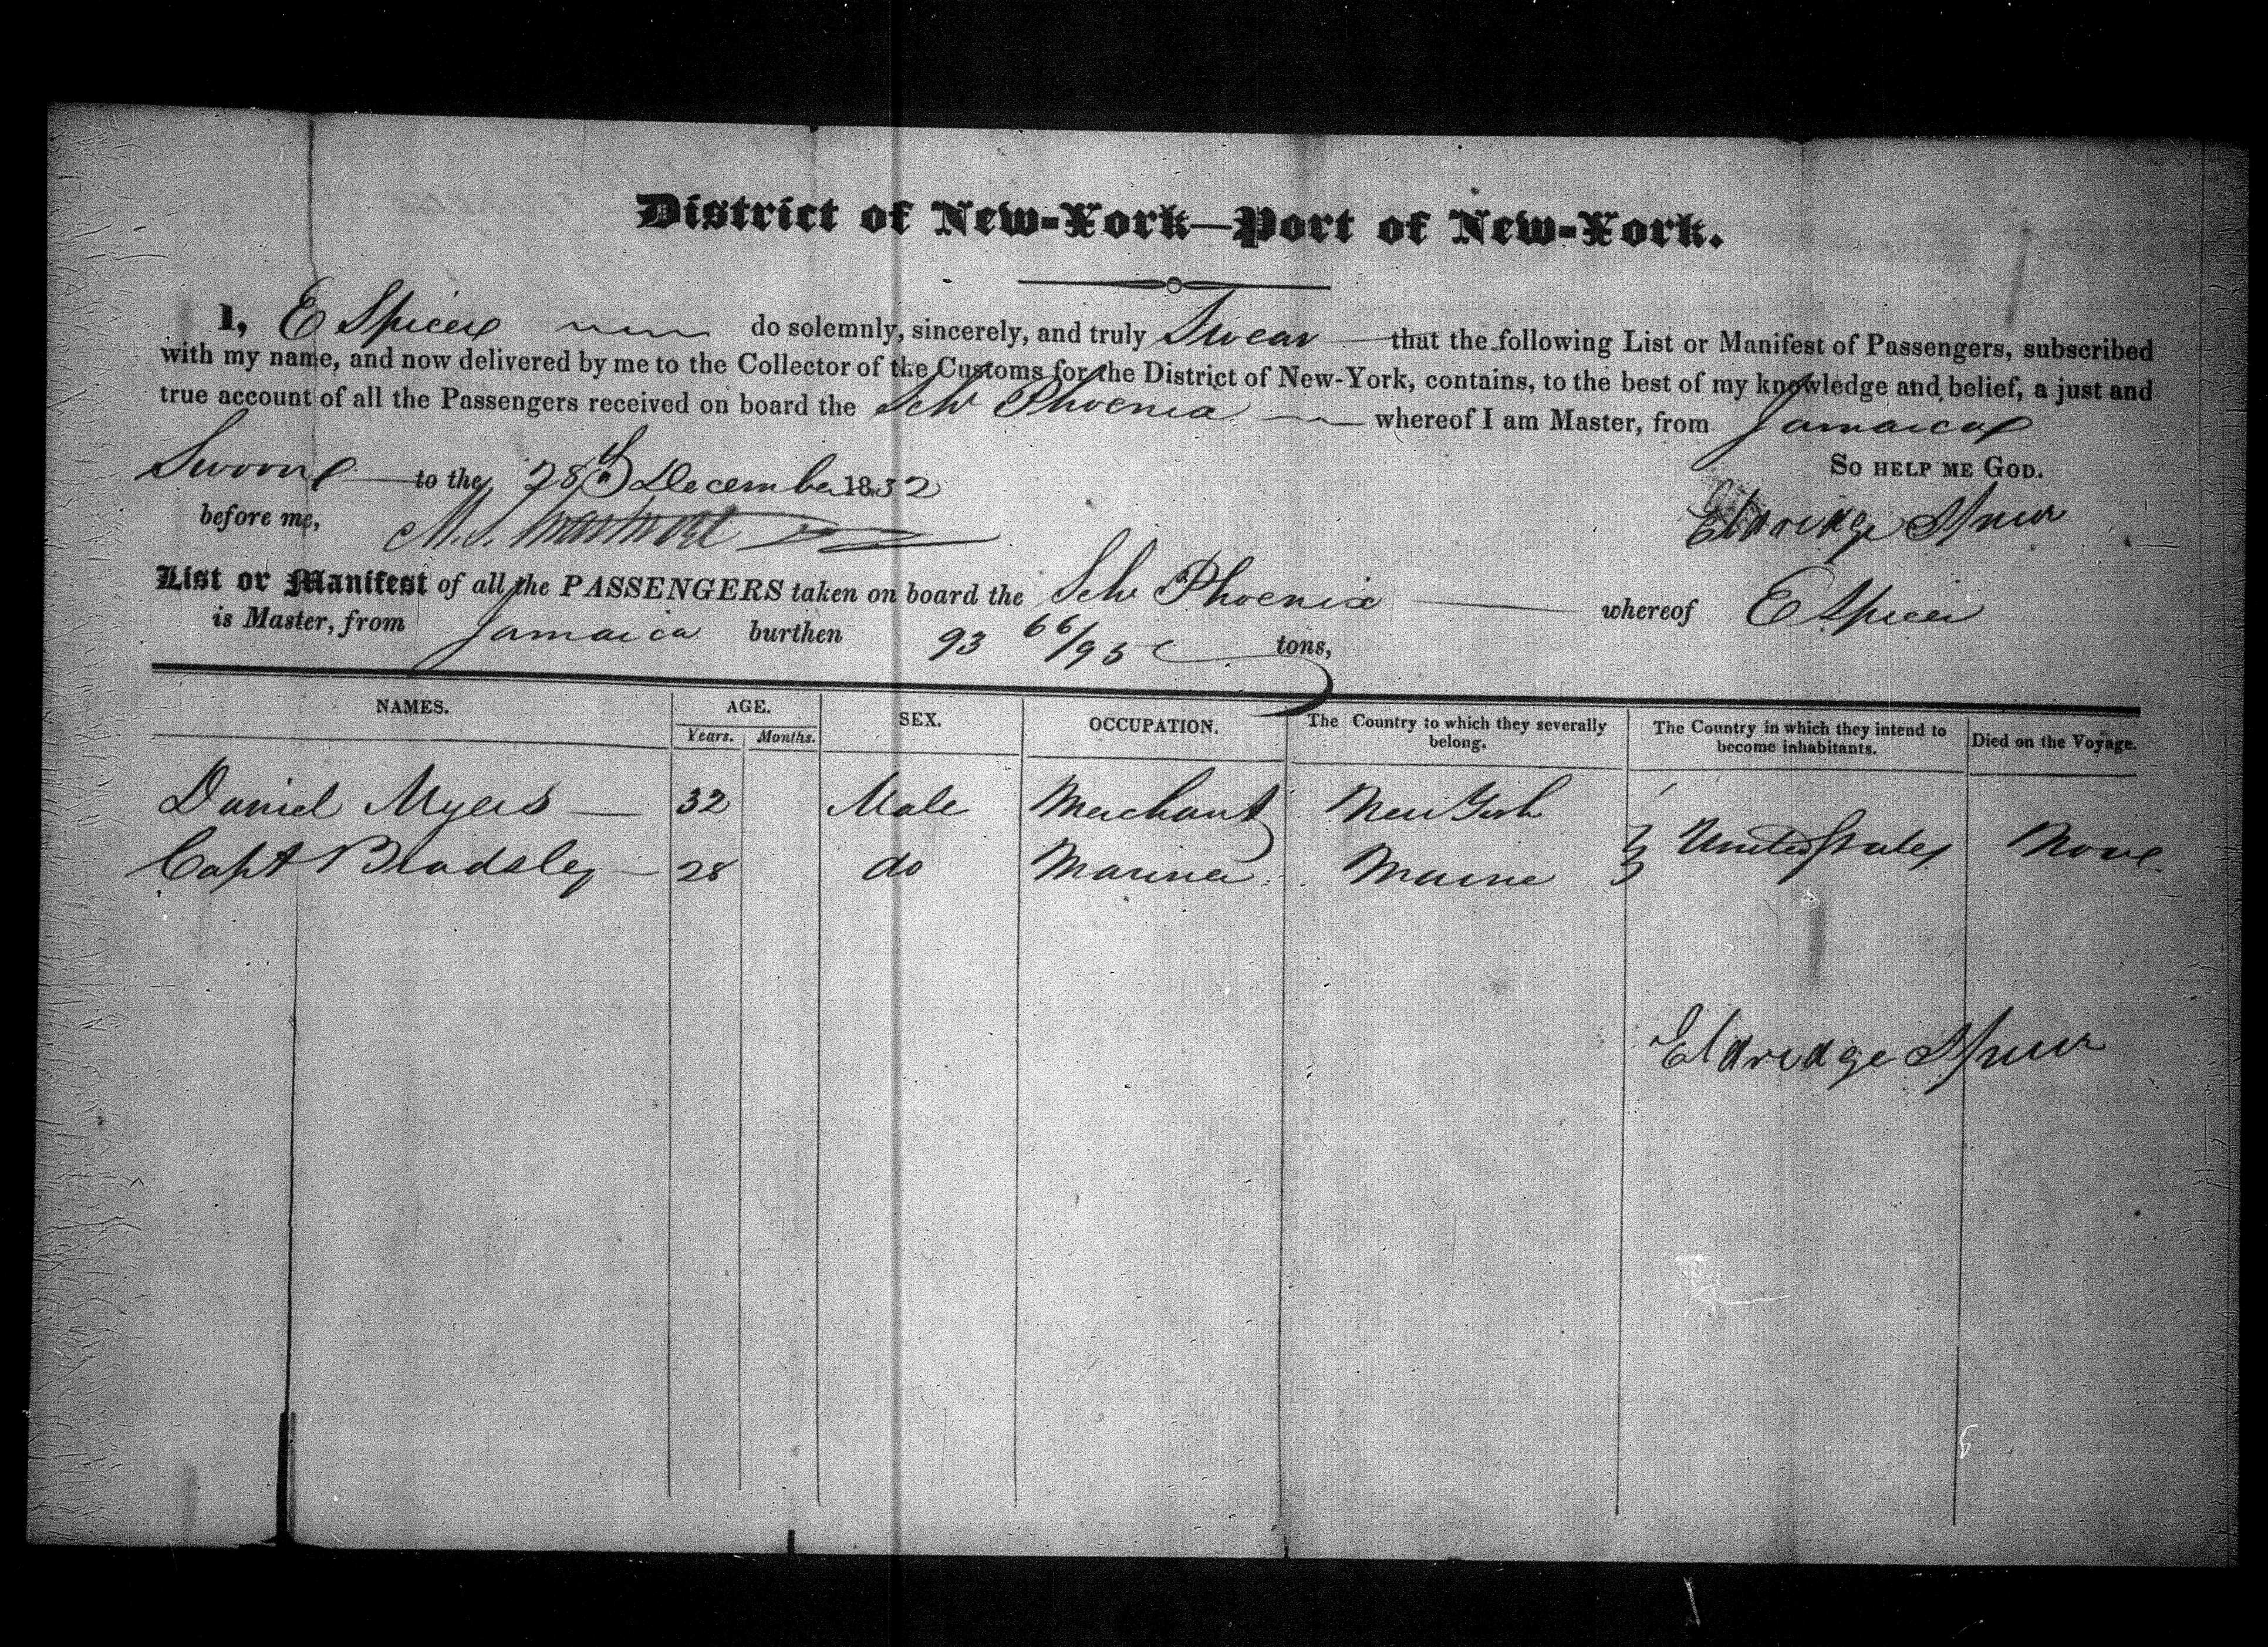 District of New-York—Port of New-York.
I, E Spicer do solemnly, sincerely, and truly Swear that the following List or Manifest of Passengers, subscribed
with my name, and now delivered by me to the Collector of the Customs for the District of New-York, contains, to the best of my knowledge and belief, a just and
true account of all the Passengers received on board the Schr Phoenix whereof I am Master, from Jamaica
SO HELP ME GOD.
Sworn to the 28th December 1832
before me, M. S.
Eldridge Spicer
List or Manifest of all the PASSENGERS taken on board the Schr Phoenix whereof E Spicer
is Master, from Jamaica burthen 93 66/95 tons,
NAMES. AGE. SEX. OCCUPATION. The Country to which they severally belong. The Country in which they intend to become inhabitants. Died on the Voyage.
Years. Months.
Daniel Myers 32 Male Merchant New York
United States None
Capt Bradsley 28 do Mariner Maine
Eldridge Spicer